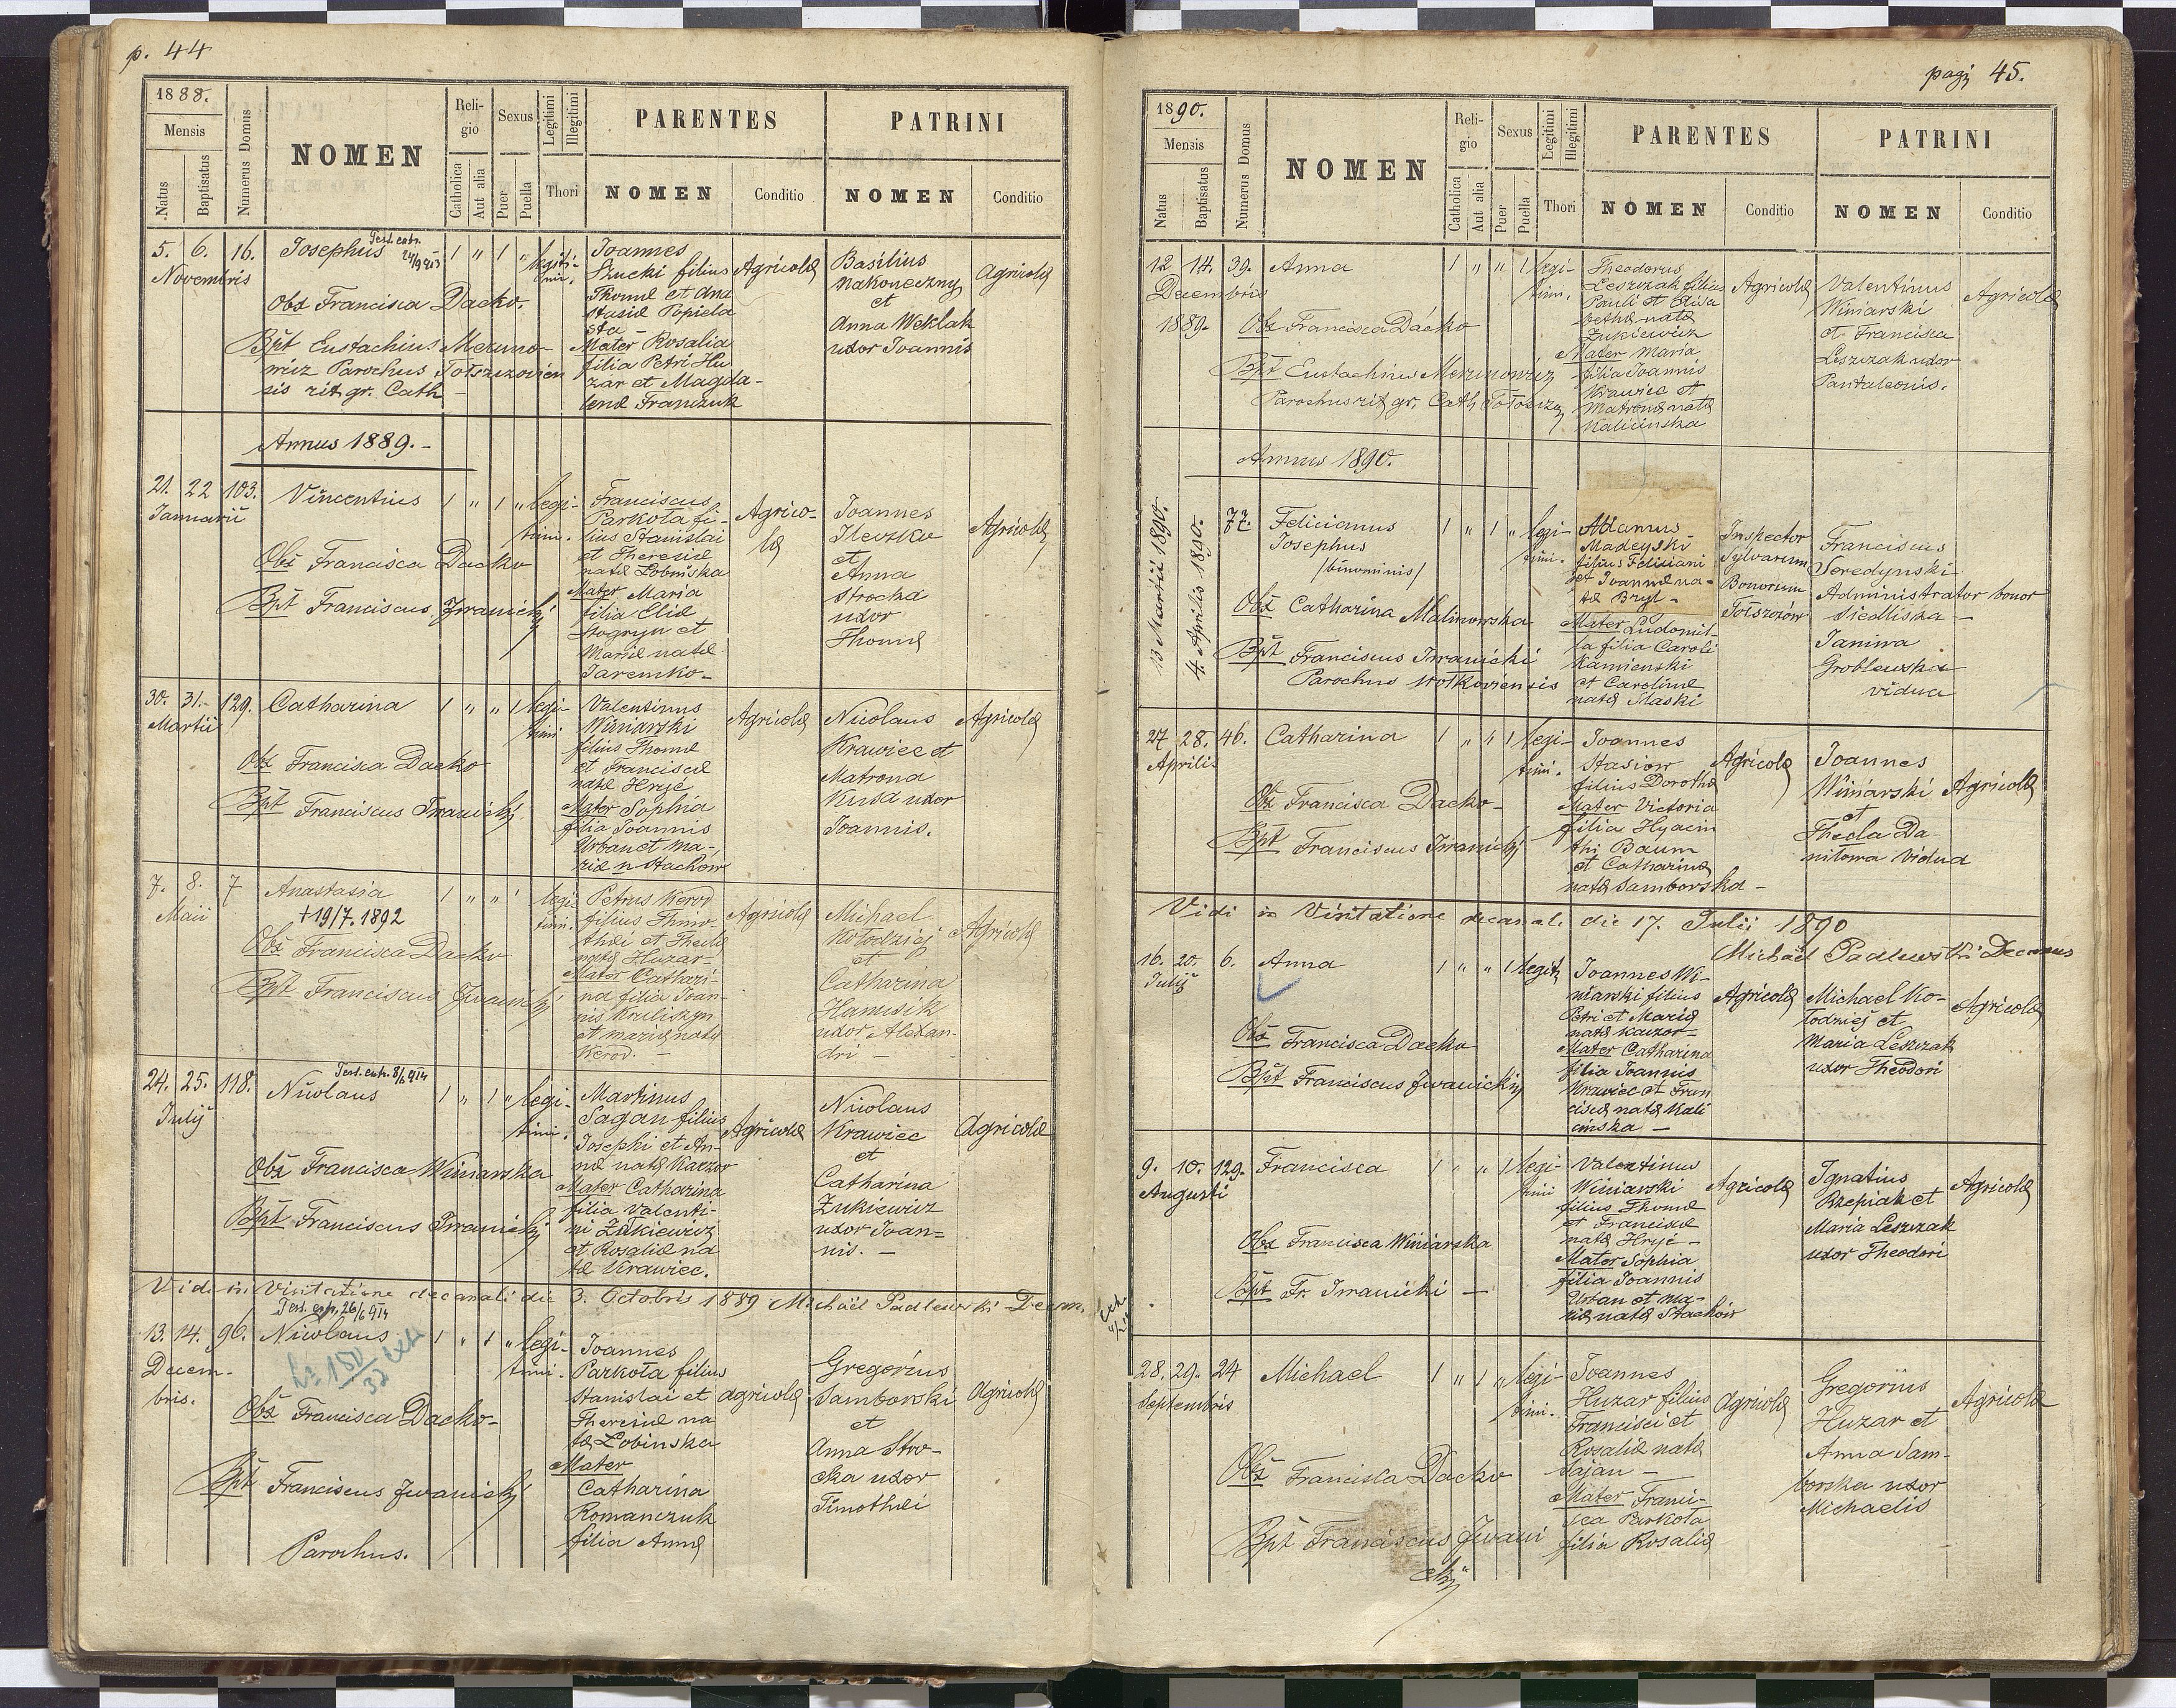 p. 44
1888.
Mensis
Natus
Baptisatus
Numerus Domus
NOMEN
Religio
Catholica
Aut alia
Sexus
Puer
Puella
Legitimi
Illegitimi
Thori
PARENTES
NOMEN
Conditio
PATRINI
NOMEN
Conditio
5. 6. 16.
Novembris
Josephus
Test. extr.
1 " 1 "
legiti-
mi.
Obs Francisca Dacko.
Bpt Eustachius Meruno-
wicz Parochus Tołszczovien
sis rit. gr. Cath -
Joannes
Szucki filius
Thomæ et Ana
stasiæ Popiela
sta -
Mater Rosalia
filia Petri Hu
zar et Magda-
lenæ Franczuk
Agricolæ
Basilius
Nakoneczny
et
Anna Weklak
uxor Joannis
Agricolæ
Annus 1889. -
21. 22 103.
Januarii
Vincentius
1 " 1 "
legi-
timi.
Obs Francisca Dacko
Bpt Franciscus Iwanický
Franciscus
Parkoła fi-
lius Stanislai
et Theresiæ
natæ Łobinska
Mater Maria
filia Eliæ
Stogryn et
Mariæ natæ
Jaremko -
Agrico-
læ
Joannes
Ileczko
et
Anna
Strocka
uxor
Thomæ
Agricolæ
30. 31. - 129.
Martii
Catharina
1 " " 1
legi-
timi
Obs Francisca Dacko
Bpt Franciscus Iwanický
Valentinus
Winiarski
filius Thomæ
et Franciscæ
natæ Hryć
Mater Sophia
filia Joannis
Urban et Ma-
riæ n Stachow
Agricolæ
Nicolaus
Krawiec et
Matrona
Kusa uxor
Joannis.
Agricolæ
7. 8. 7
Maii
Anastasia
+ 19/7. 1892
1 " " 1
legi
timi.
Obs Francisca Dacko
Bpt Franciscus Iwanický
Petrus Kerod
filius Thimo-
thei et Theclæ
natæ Huzar -
Mater Cathari-
na filia Joan-
nis Kruliszyn
et Mariæ natæ
Kerod. -
Agricolæ
Michael
Kołodziej
et
Catharina
Hamsik
uxor Alexan-
dri -
Agricolæ
24. 25. 118.
Julij
Test. extr. 8/6 914
Nicolaus
1 " 1 "
legi-
timi.
Obs Francisca Winiarska
Bpt Franciscus Iwanický
Martinus
Sagan filius
Josephi et An-
næ natæ Kaczor
Mater Catharina
filia Valenti-
ni Żukiewicz
et Rosaliæ na
tæ Krawiec.
Agricolæ
Nicolaus
Krawiec
et
Catharina
Żukiewicz
uxor Joan=
nis. -
Agricolæ
Vidi in Visitatione decanali die 3. Octobris 1889 Michaël Padlewski Decan.
Test. extr. 26/6 914
13. 14. 96.
Decem-
bris.
Nicolaus
1 " 1 "
legi-
timi.
Obs Francisca Dacko -
Bpt Franciscus Iwanický
Parochus.
Joannes
Parkoła filius
Stanislai et
Theresiæ na
tæ Łobinska
Mater
Catharina
Romanczuk
filia Annæ
agricolæ
Gregorius
Samborski
et
Anna Stro-
cka uxor
Timothei
Agricolæ
pagi 45.
1890.
Mensis
Natus
Baptisatus
Numerus Domus
NOMEN
Religio
Catholica
Aut alia
Sexus
Puer
Puella
Legitimi
Illegitimi
Thori
PARENTES
NOMEN
Conditio
PATRINI
NOMEN
Conditio
12 14. 39.
Decembris
1889.
Anna
1 " " 1
legi-
timi.
Obs Francisca Dacko
Bpt Eustachius Merunowicz
Parochus rit gr. Cath Tołszcz
Theodorus
Leszczak filius
Pauli et Elisa
bethæ natæ
Żukiewicz
Mater Maria
filia Joannis
Krawiec et
Matronæ natæ
Kalicinska
Agricolæ
Valentinus
Winiarski
et Francisca
Leszczak uxor
Pantaleonis.
Agricolæ
Annus 1890.
13 Martii 1890.
4. Aprilis 1890.
77.
Felicianus
Josephus
/binominis/
1 " 1 "
legi-
timi.
Obs Catharina Malinowska
Bpt Franciscus Iwanicki
Parochus Wołkoviensis
Adamus
Madeyski
filius Feliciani
et Joannæ na-
tæ Bryl -
Mater Ludomil-
la filia Caroli
Kamienski
et Carolinæ
natæ Slaski
Inspector
Sylvarum
Bonorum
Tołszczów
Franciscus
Seredynski
Administrator bonor
Siedliska -
Janina
Groblewska
vidua
27 28. 46.
Aprilis
Catharina
1 " " 1
legi-
timi.
Obs Francisca Dacko -
Bpt Franciscus Iwanický
Joannes
Stasiow
filius Dorothæ
Mater Victoria
filia Hyacin
thi Baum
et Catharinæ
natæ Samborska -
Agricolæ
Joannes
Winiarski
et
Thecla Da-
nilowa vidua
Agricolæ
Vidi in Visitatione decanali die 17. Julii 1890
Michaël Padlewski Decanus
16. 20. 6.
Julij
Anna
1 " " 1
legit
Obs Francisca Dacko
Bpt Franciscus Iwanický
Joannes Wi-
niarski filius
Petri et Mariæ
natæ Kaczor -
Mater Catharina
filia Joannis
Krawiec et Fran
ciscæ natæ Kali
cinska -
Agricolæ
Michael Ko-
łodziej et
Maria Leszczak
uxor Theodori
Agricolæ
9. 10. 129.
Augusti
Francisca
1 " " 1
legi-
timi
Obs Francisca Winiarska
Bpt Fr. Iwanicki -
Valentinus
Winiarski
filius Thomæ
et Franciscæ
natæ Hryć -
Mater Sophia
filia Joannis
Urban et Ma-
riæ natæ Stachów
Agricolæ
Ignatius
Rzepiak et
Maria Leszczak
uxor Theodori
Agricolæ
28. 29. 24
Septembris
Michael
1 " 1 "
legi-
timi.
Obs Francisca Dacko
Bpt Franciscus Iwani
cky
Joannes
Huzar filius
Francisci et
Rosaliæ natæ
Sajan -
Mater Franci-
sca Parkoła
filia Rosaliæ
Agricolæ
Gregorius
Huzar et
Anna Sam-
borska uxor
Michaelis
Agricolæ